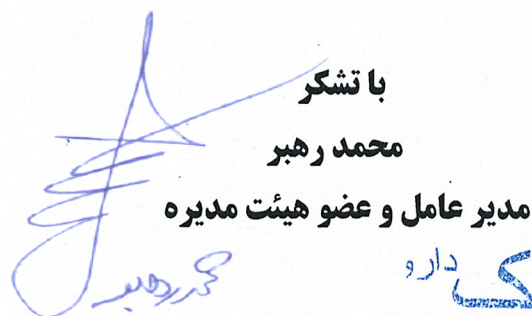 با تشکر
محمد رهبر
مدیر عامل و عضو هیئت مدیره
دارو